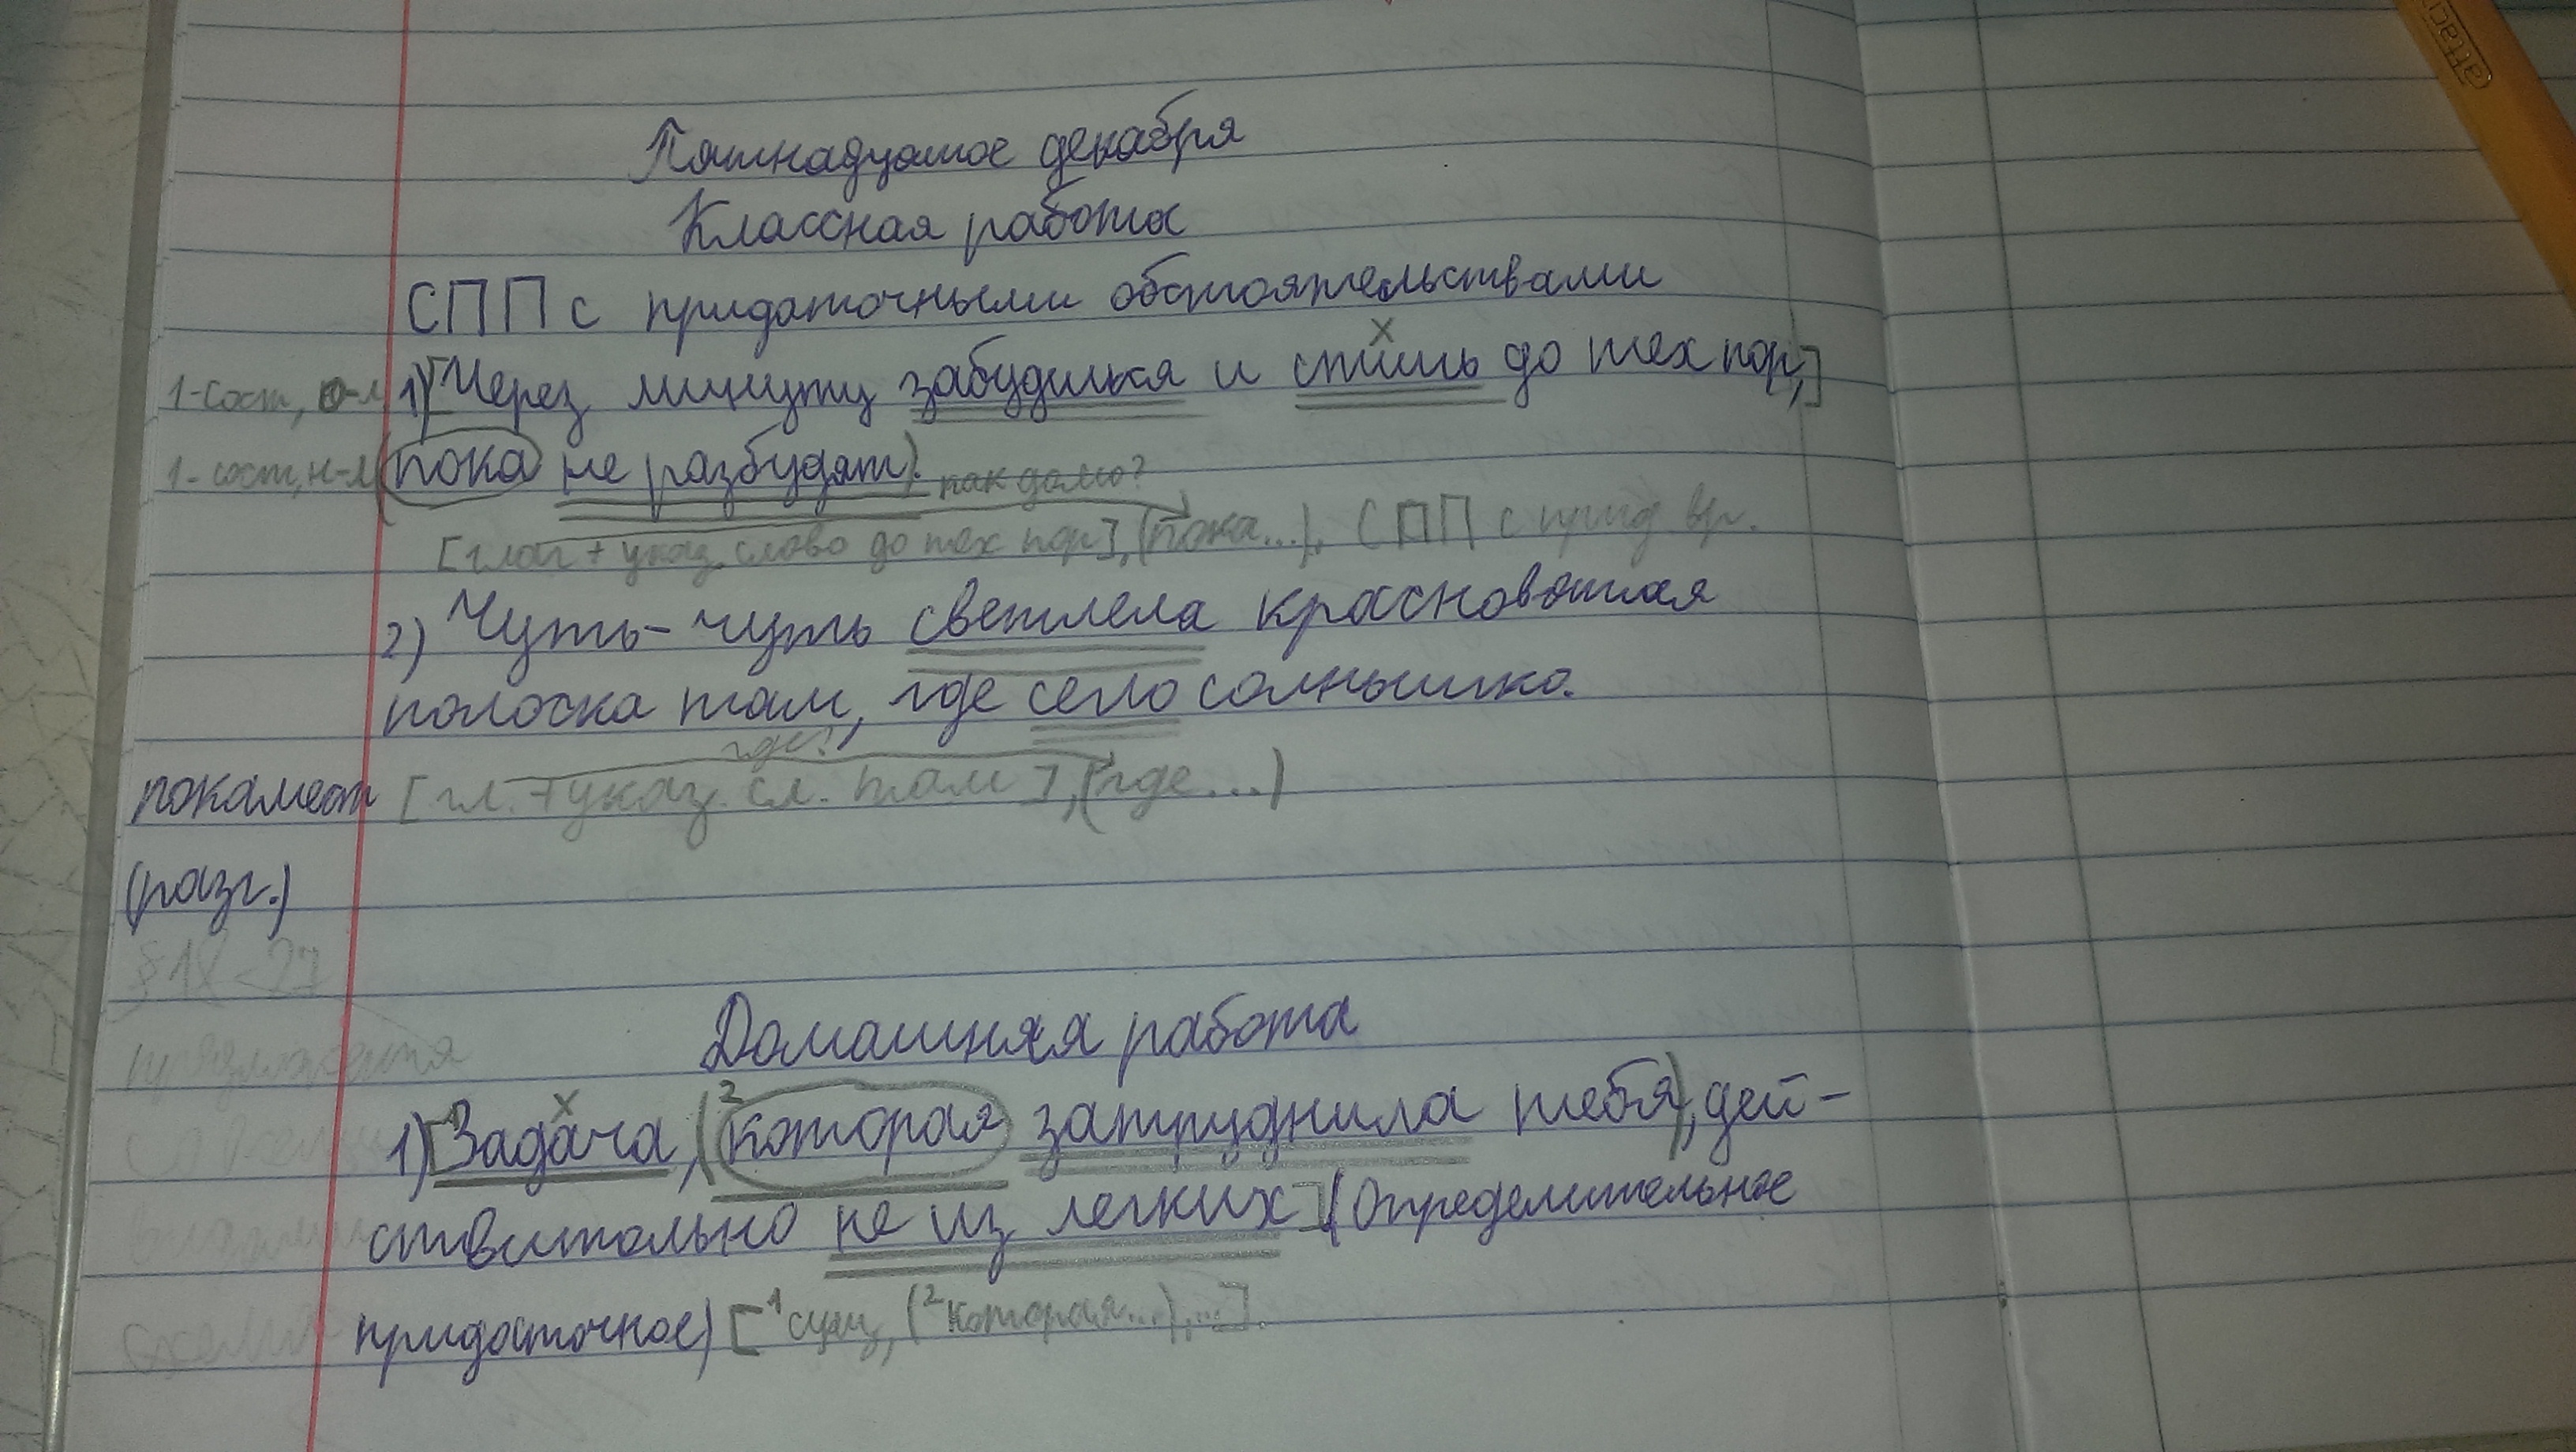 Пятнадцатое декабря
Классная работа
СПП с придаточными обстоятельствами
1-сост, о-л 1) [Через минуту забудишься и спишь до тех пор,]
1-сост, н-л (пока не разбудят). как долго?
[глаг + указ. слово до тех пор], (пока...). СПП с прид вр.
2) Чуть-чуть светлела красноватая
полоска там, где село солнышко.
где?
покамест [гл. + указ. сл. там], (где...)
(разг.)
§18-27
Домашняя работа
1) [Задача, (2 которая затруднила тебя), дей-
ствительно не из легких] (Определительное
придаточное) [1 сущ, (2 которая...), ...].
схемы